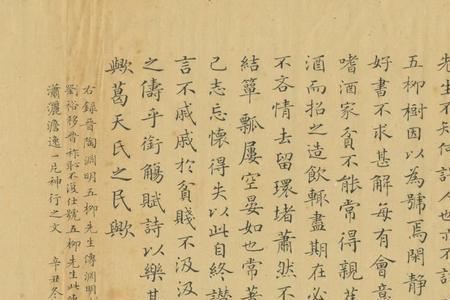 先生不知何許人也亦不詳
五柳樹因以為號焉閑靜
好書不求甚解每有會意
嗜酒家貧不能常得親舊
酒而招之造飲輒盡期在必
不吝情去留環堵蕭然不
結簞瓢屢空晏如也常著
己志忘懷得失以此自終讚
言不戚戚於貧賤不汲汲
之儔乎銜觴賦詩以樂其
歟葛天氏之民歟
右錄晉陶淵明五柳先生傳淵明
劉裕移晉祚恥不復仕號五柳先生此傳
瀟灑澹逸一片神行之文 辛丑冬